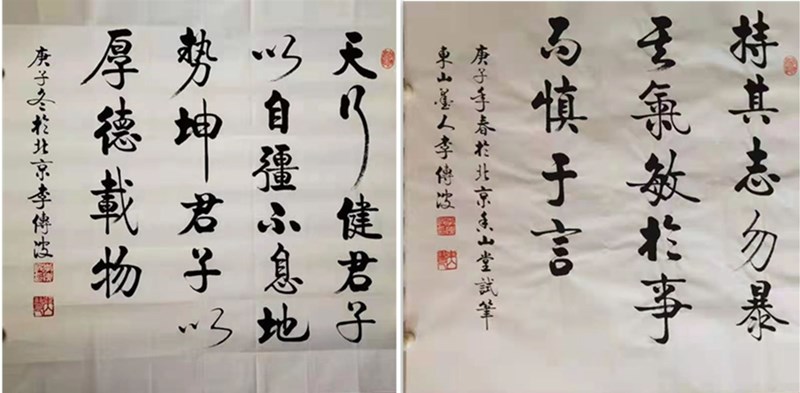 天行健君子
以自彊不息地
勢坤君子以
厚德載物
庚子冬於北京李傳波
持其志勿暴
其氣敏於事
而慎于言
庚子年春於北京香山堂試筆
東山墨人李傳波